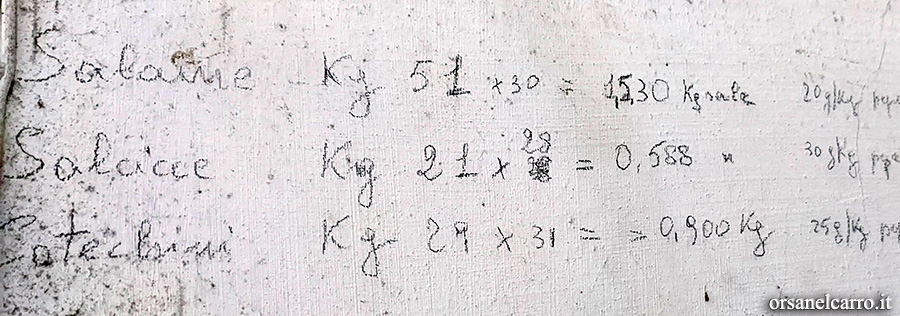 Salame Kg 51 x 30 = 1,530 Kg sale 20g/Kg pepe
Salsicce Kg 21 x 28 = 0,588 " 30gKg pepe
Cotechini Kg 29 x 31 = = 0,900 Kg 25g/Kg
orsanelcarro.it